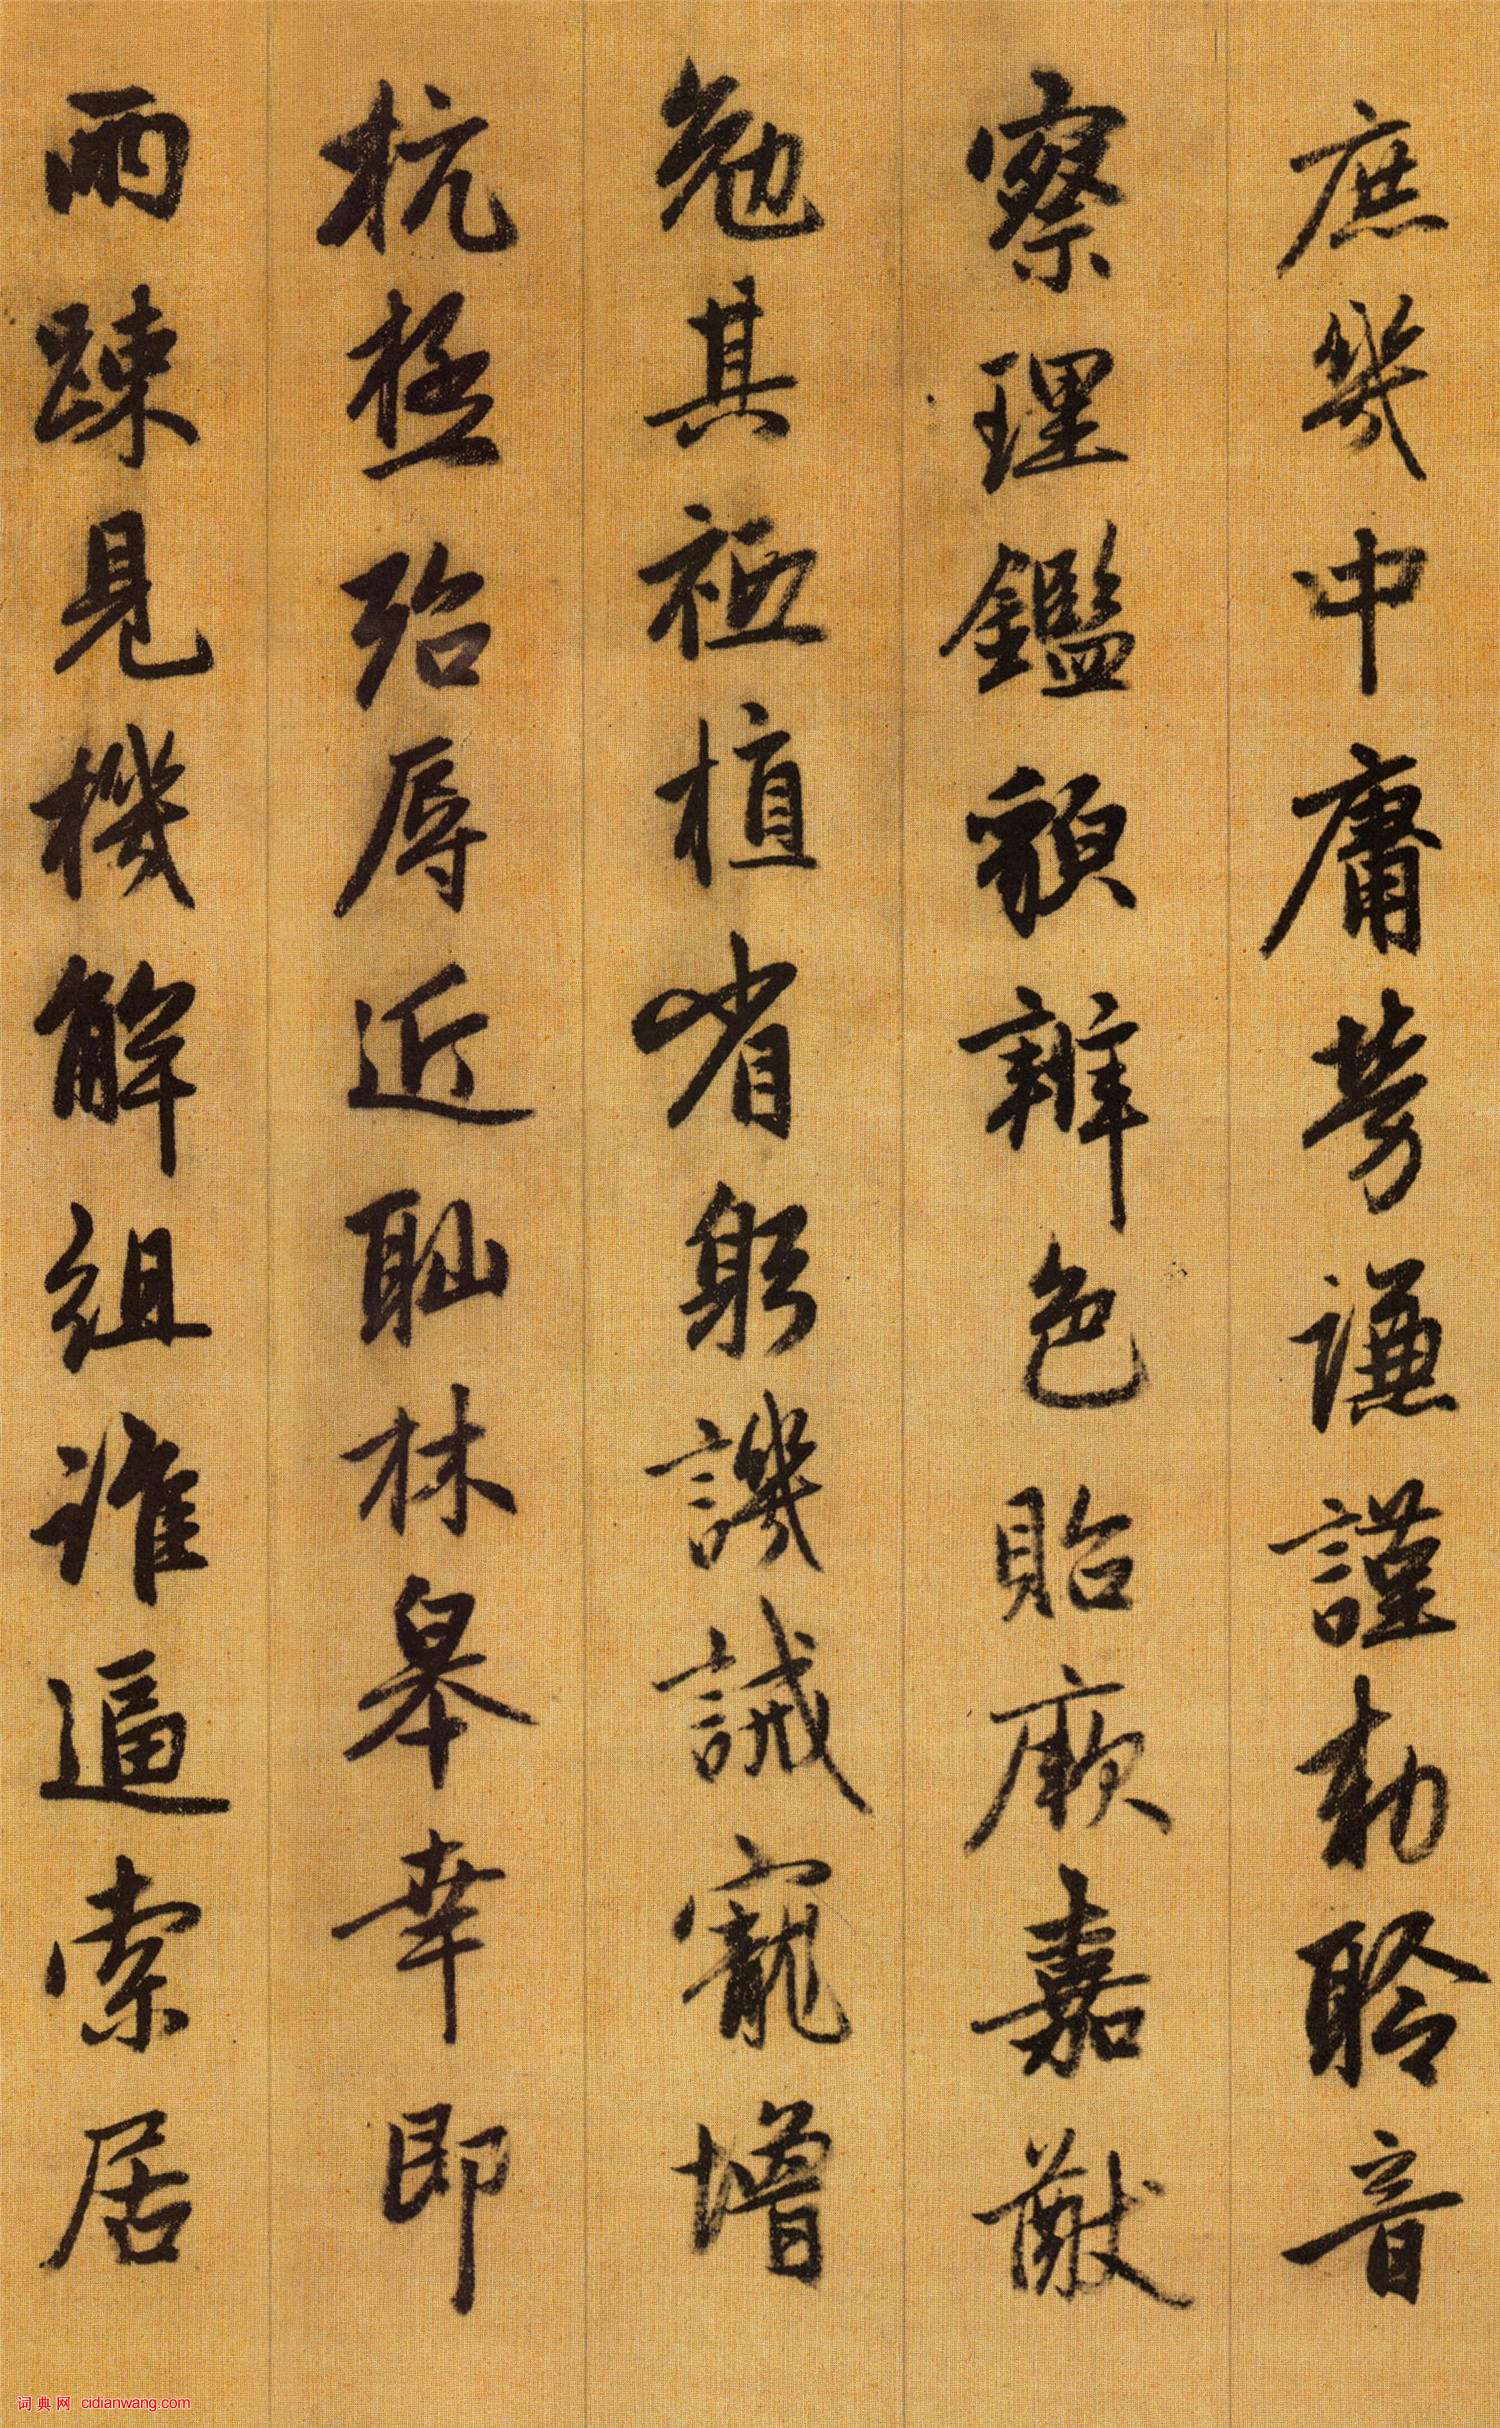 庶幾中庸勞謙謹勅聆音
察理鑑䫉辨色貽厥嘉猷
勉其祗植省躬譏誡寵增
抗極殆辱近耻林皋幸即
兩踈見機解組誰逼索居
词典网 cidianwang.com